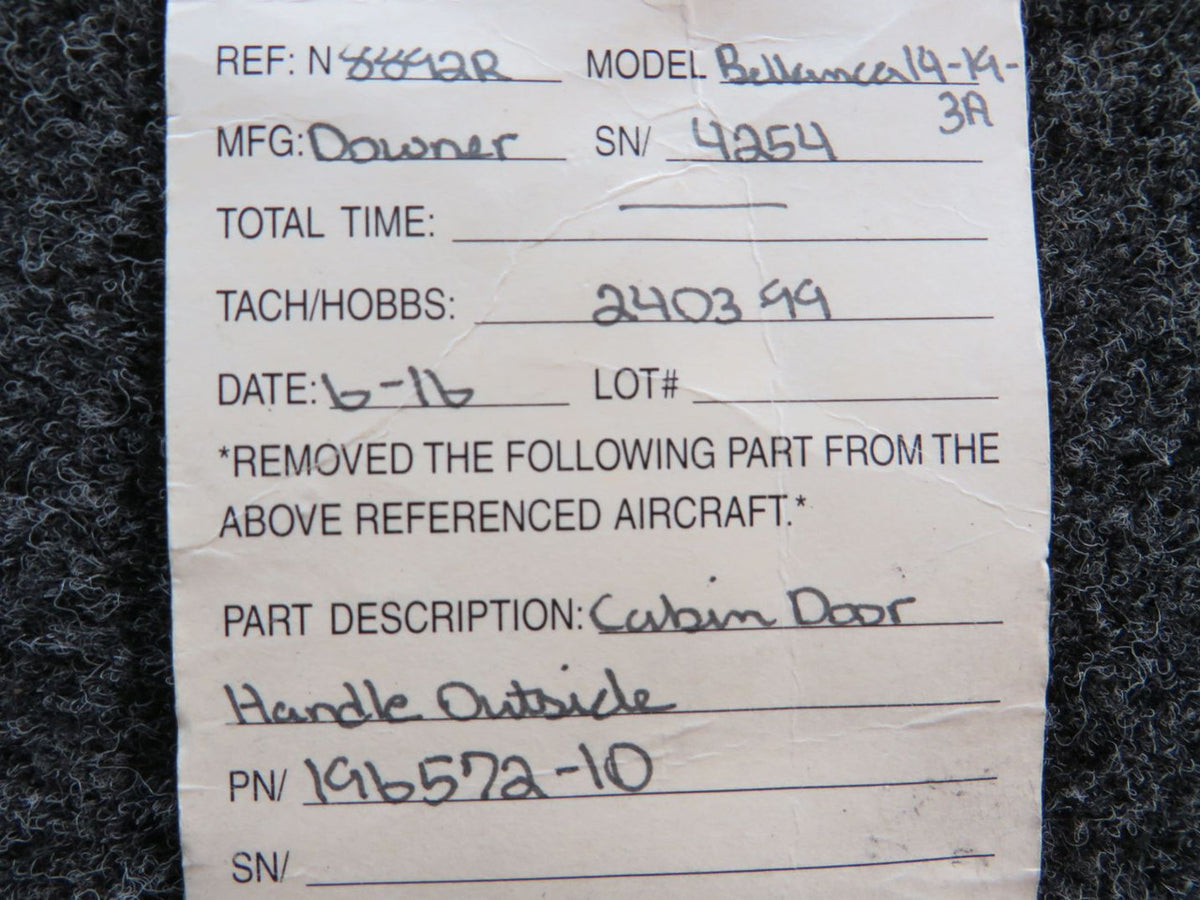 REF: N 8892R MODEL Bellanca 14-19-
3A
MFG: Downer SN/ 4254
TOTAL TIME: —
TACH/HOBBS: 2403 99
DATE: 6-16 LOT#
*REMOVED THE FOLLOWING PART FROM THE
ABOVE REFERENCED AIRCRAFT.*
PART DESCRIPTION: Cabin Door
Handle Outside
PN/ 196572-10
SN/